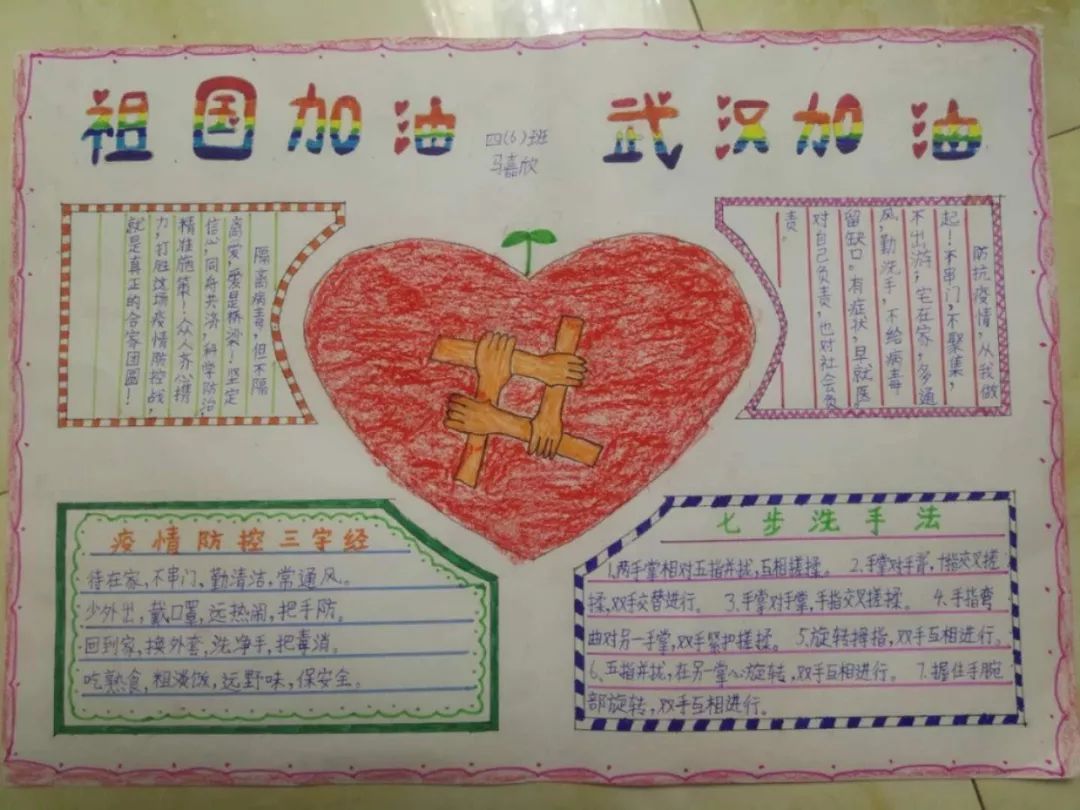 祖国加油
四(6)班
马嘉欣
武汉加油
隔离病毒,但不隔
离爱,爱是桥梁!坚定
信心,同舟共济,科学防治,
精准施策!众人齐心携
力,打胜这场疫情防控战,
就是真正的合家团圆!
防抗疫情,从我做
起!不串门,不聚集,
不出游,宅在家,多通
风,勤洗手,不给病毒
留缺口。有症状,早就医。
对自己负责,也对社会负
责。
疫情防控三字经
待在家,不串门、勤清洁,常通风。
少外出,戴口罩,远热闹,把手防。
回到家,换外套,洗净手,把毒消。
吃熟食,粗淡饭,远野味,保安全。
七步洗手法
1、两手掌相对五指并拢,互相搓揉。 2、手掌对手背,十指交叉搓
揉,双手交替进行。 3、手掌对手掌,手指交叉搓揉。 4、手指弯
曲对另一手掌,双手紧护搓揉。 5、旋转拇指,双手互相进行。
6、五指并拢,在另一掌心旋转,双手互相进行。 7、握住手腕
部旋转,双手互相进行。